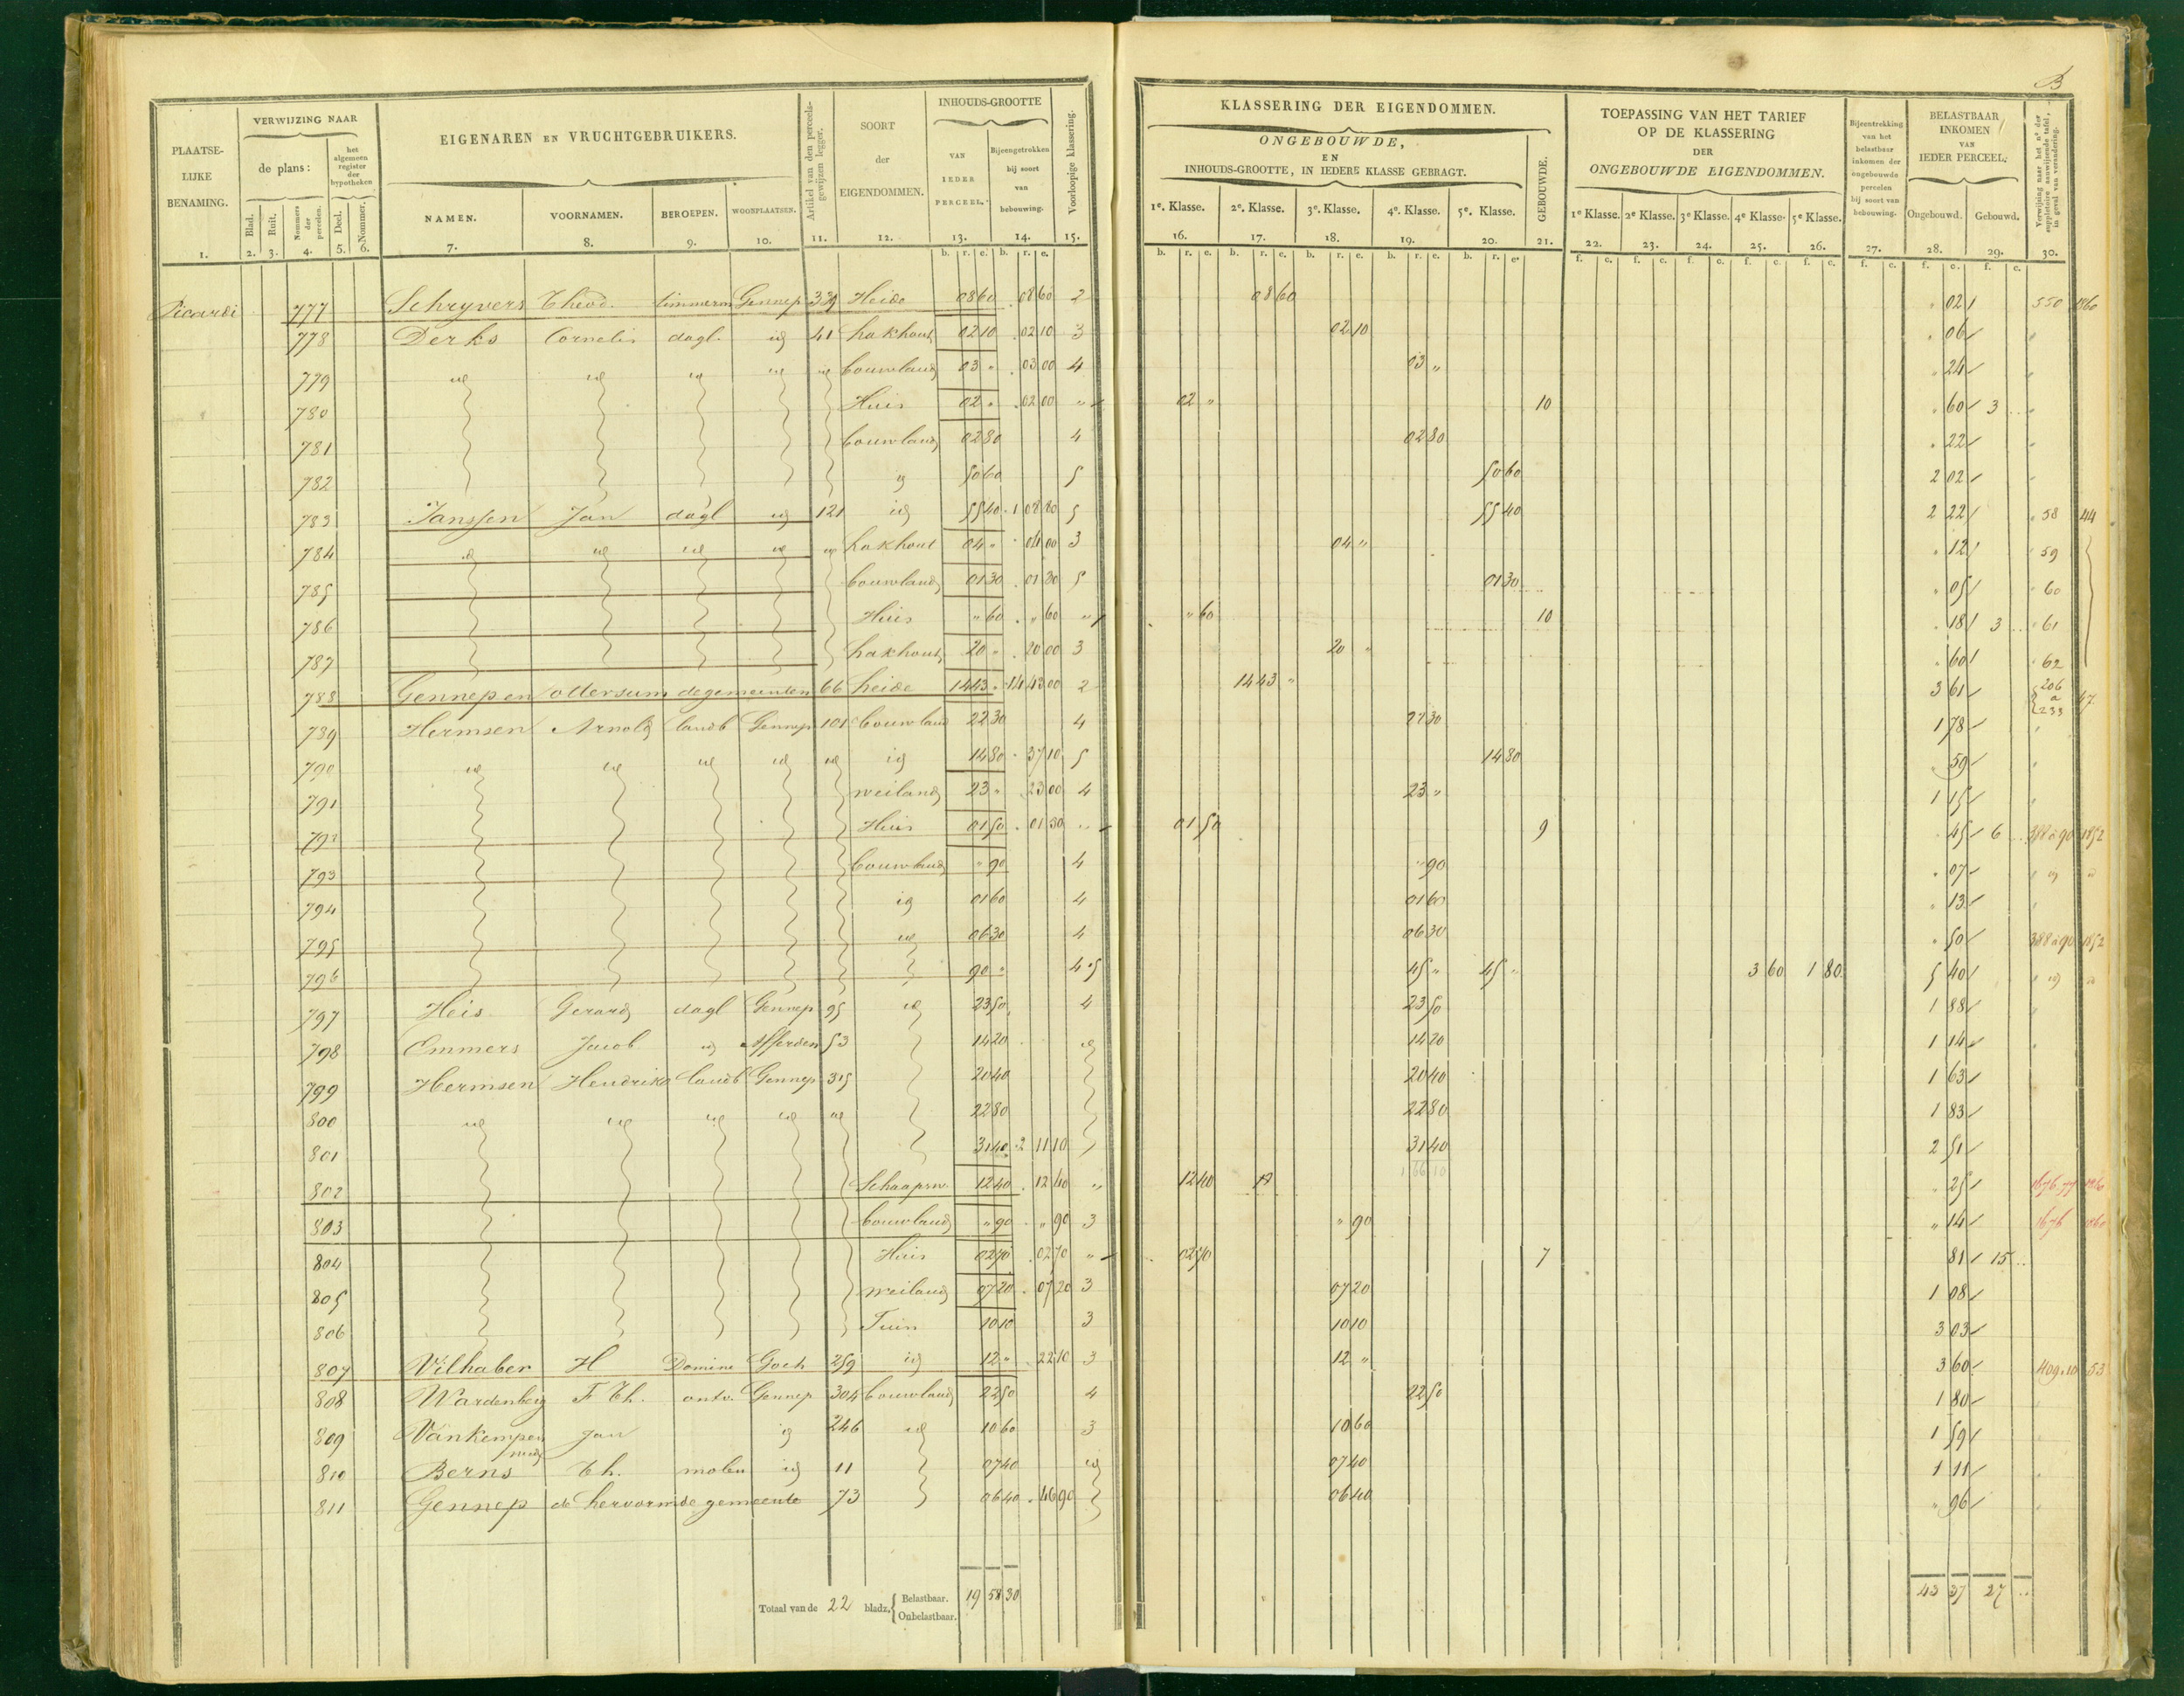 B
PLAATSE-LIJKE BENAMING.
VERWIJZING NAAR
de plans:
het algemeen register der hypotheken
EIGENAREN EN VRUCHTGEBRUIKERS.
Artikel van den perceels-gewijzen legger.
SOORT der EIGENDOMMEN.
INHOUDS-GROOTTE
VAN IEDER PERCEEL.
Bijeengetrokken bij soort van bebouwing.
Voorloopige klassering.
Blad. Ruit. Nommers der perceelen. Deel. Nommer.
NAMEN. VOORNAMEN. BEROEPEN. WOONPLAATSEN.
1. 2. 3. 4. 5. 6. 7. 8. 9. 10. 11. 12. 13. 14. 15.
b. r. e. b. r. e.
KLASSERING DER EIGENDOMMEN.
ONGEBOUWDE,
EN
INHOUDS-GROOTTE, IN IEDERE KLASSE GEBRAGT.
GEBOUWDE.
1e. Klasse. 2e. Klasse. 3e. Klasse. 4e. Klasse. 5e. Klasse.
16. 17. 18. 19. 20. 21.
TOEPASSING VAN HET TARIEF
OP DE KLASSERING
DER
ONGEBOUWDE EIGENDOMMEN.
1e Klasse. 2e Klasse. 3e Klasse. 4e Klasse. 5e Klasse.
22. 23. 24. 25. 26.
Bijeentrekking van het belastbaar inkomen der ongebouwde perceelen bij soort van bebouwing.
27.
BELASTBAAR INKOMEN VAN IEDER PERCEEL.
Ongebouwd. Gebouwd.
28. 29.
Verwijzing naar het no. der suppletoire aanwijzende tafel, in geval van verandering.
30.
Picardi 777 Schryvers Theod. timmerm Gennep 339 Heide 08 60 08 60 2 08 60 02 550 1860
778 Derks Cornelis dagl. id 41 hakhout 02 10 02 10 3 02 10 06
779 id id id id id bouwland 03 " 03 00 4 03 " 24
780 Huis 02 " 02 00 " 02 " 10 60 3
781 bouwland 02 80 4 02 80 22
782 id 50 60 5 50 60 2 02
783 Janssen Jan dagl id 121 id 55 40 1 08 80 5 55 40 2 22 58 44
784 id id id id id hakhout 04 " 04 00 3 04 " 12 59
785 bouwland 01 30 01 30 5 01 30 05 60
786 Huis " 60 " 60 " " 60 10 18 3 61
787 hakhout 20 " 20 00 3 20 " 60 62
788 Gennep en ottersum de gemeenten 66 heide 14 43 " 14 43 00 2 14 43 " 3 61 206 a 233 47
789 Hermsen Arnold landb Gennep 101 bouwland 22 30 4 22 30 1 78
790 id id id id id id 14 80 37 10 5 14 80 59
791 weiland 23 " 23 00 4 23 " 1 15
792 Huis 01 50 01 50 " 01 50 9 45 6 388 a 90 1852
793 bouwland " 90 4 " 90 07 id
794 id 01 60 4 01 60 13
795 id 06 30 4 06 30 50 388 a 90 1852
796 90 " 4.5 45 " 45 " 3 60 1 80 5 40 id
797 Heis Gerard dagl Gennep 95 id 23 50 4 23 50 1 88
798 Emmers Jacob id Afferden 53 14 20 id 14 20 1 14
799 Hermsen Hendrika landb Gennep 315 20 40 20 40 1 63
800 id id id id id 22 80 22 80 1 83
801 31 40 2 11 10 31 40 2 51
802 Schaapsw. 12 40 12 40 " 12 40 25 1676.77 1860
803 bouwland " 90 " 90 3 " 90 " 14 1676 1860
804 Huis 02 70 02 70 " 02 70 7 81 15
805 weiland 07 20 07 20 3 07 20 1 08
806 Tuin 10 10 3 10 10 3 03
807 Vilhaber H Domine Goch 259 id 12 " 22 10 3 12 " 3 60 409.10 53
808 Wardenberg F Th. ontv. Gennep 304 bouwland 22 50 4 22 50 1 80
809 Vankempen Jan id 246 id 10 60 3 10 60 1 59
810 Berns Th. molen id 11 07 40 id 07 40 1 11
811 Gennep de hervormde gemeente 73 06 40 46 90 06 40 " 96
Totaal van de 22 bladz. Belastbaar. Onbelastbaar. 19 58 30
43 37 27